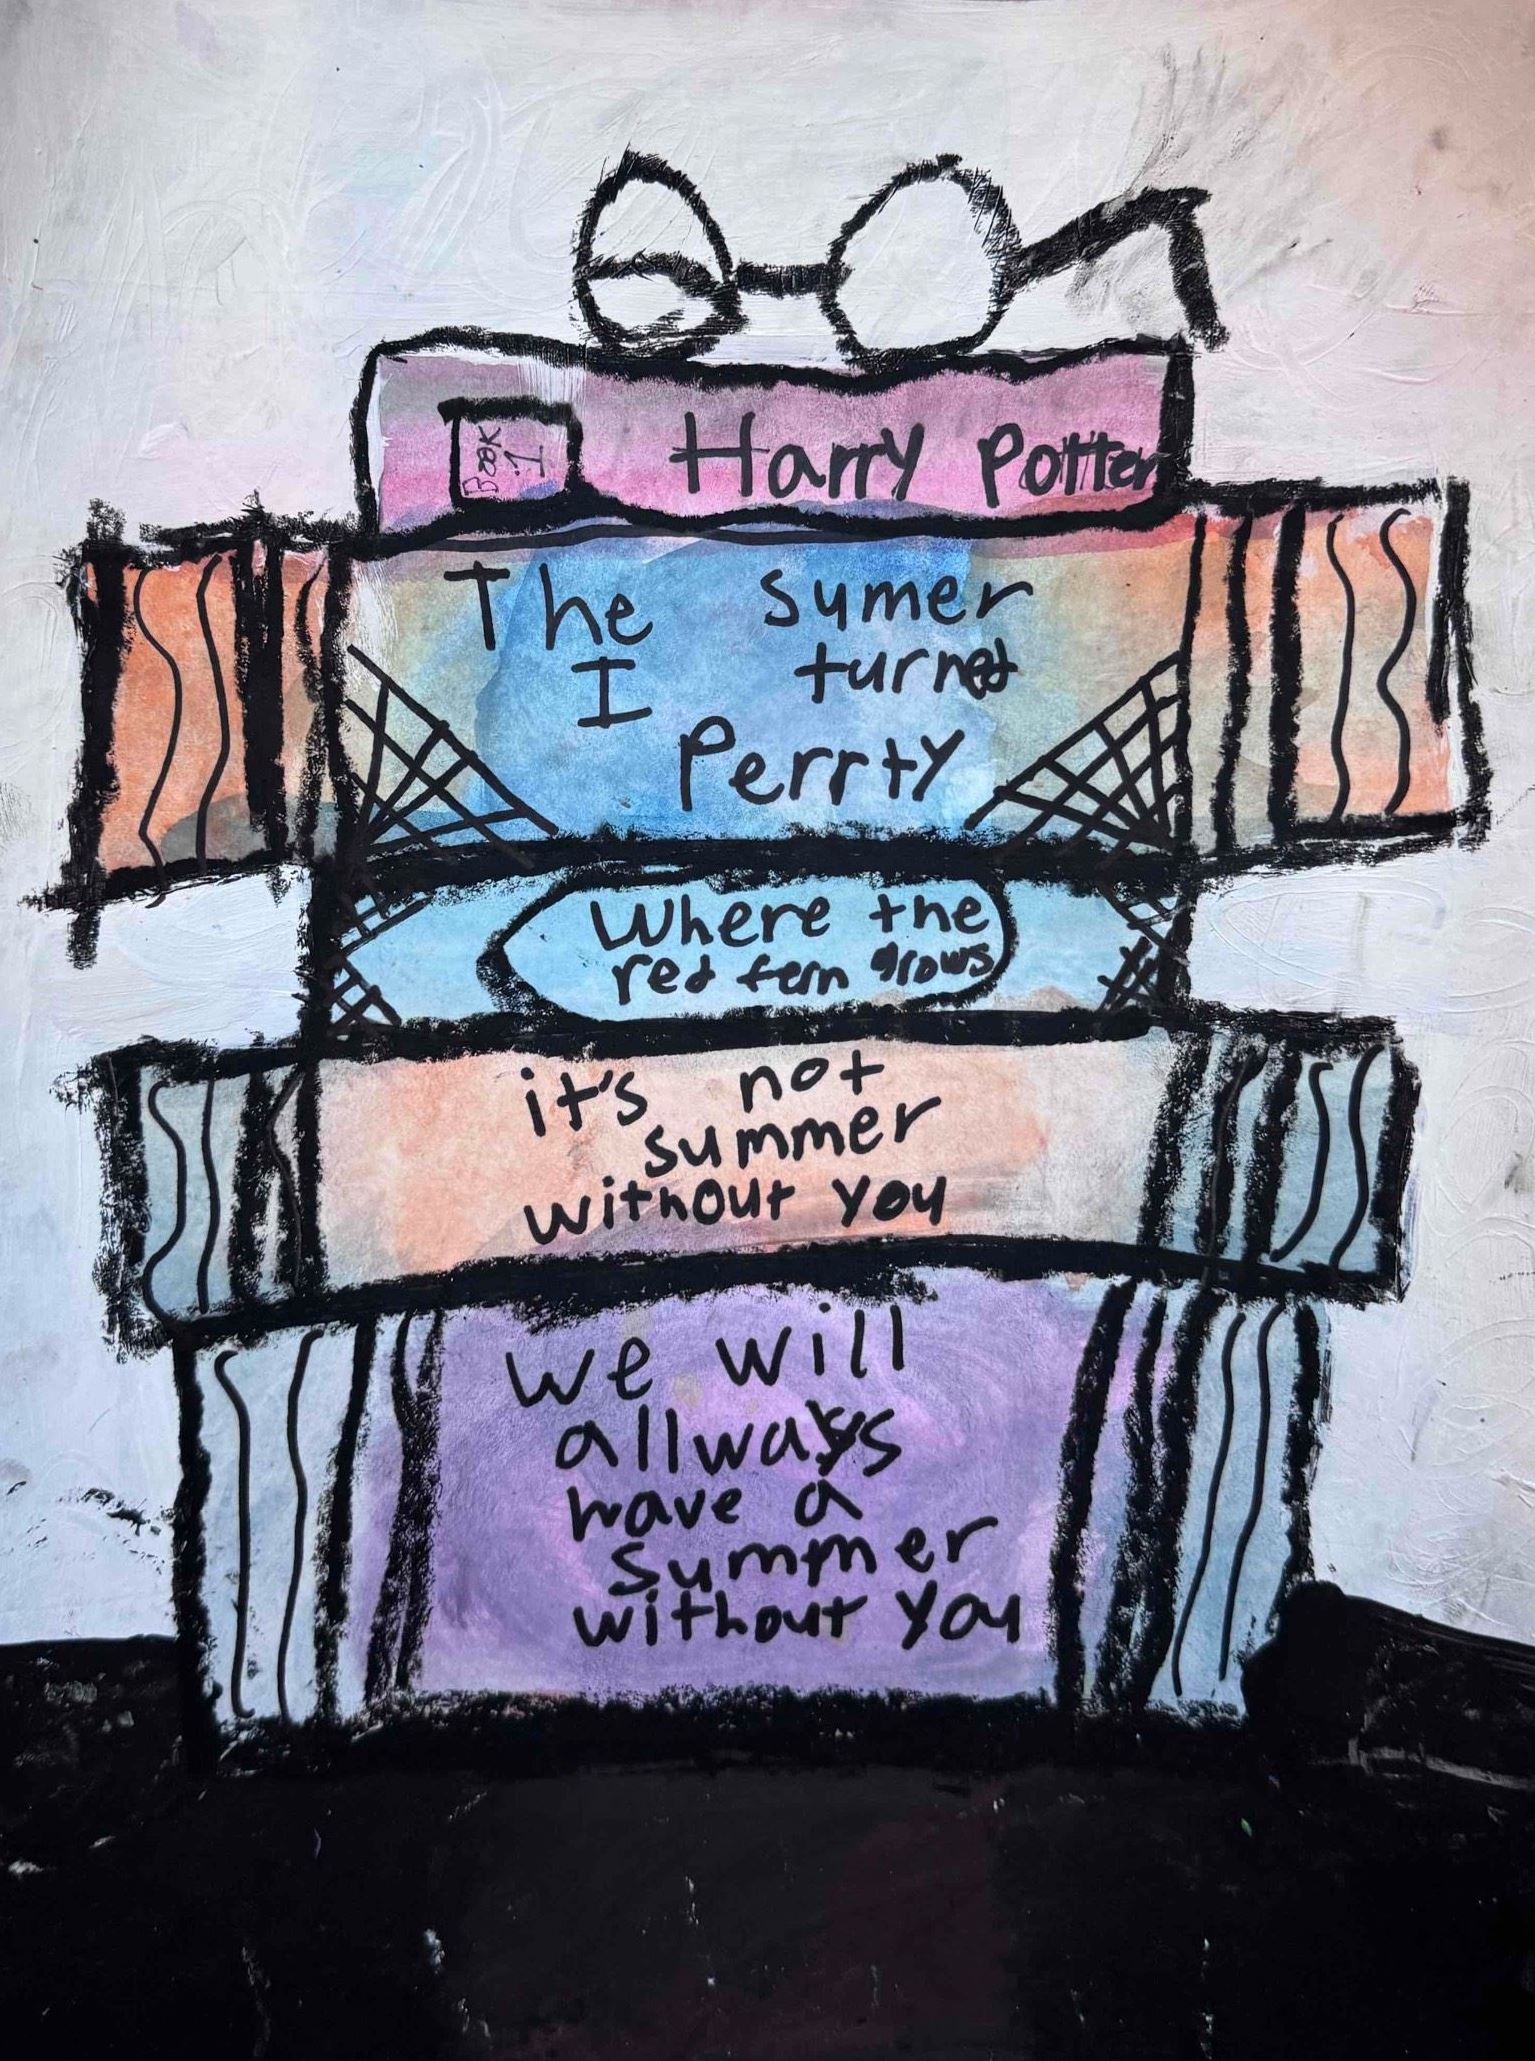 Book 1
Harry Potter
The sumer
I turned
Perrty
Where the
red fern grows
it's not
summer
without you
we will
allways
have a
summer
without you